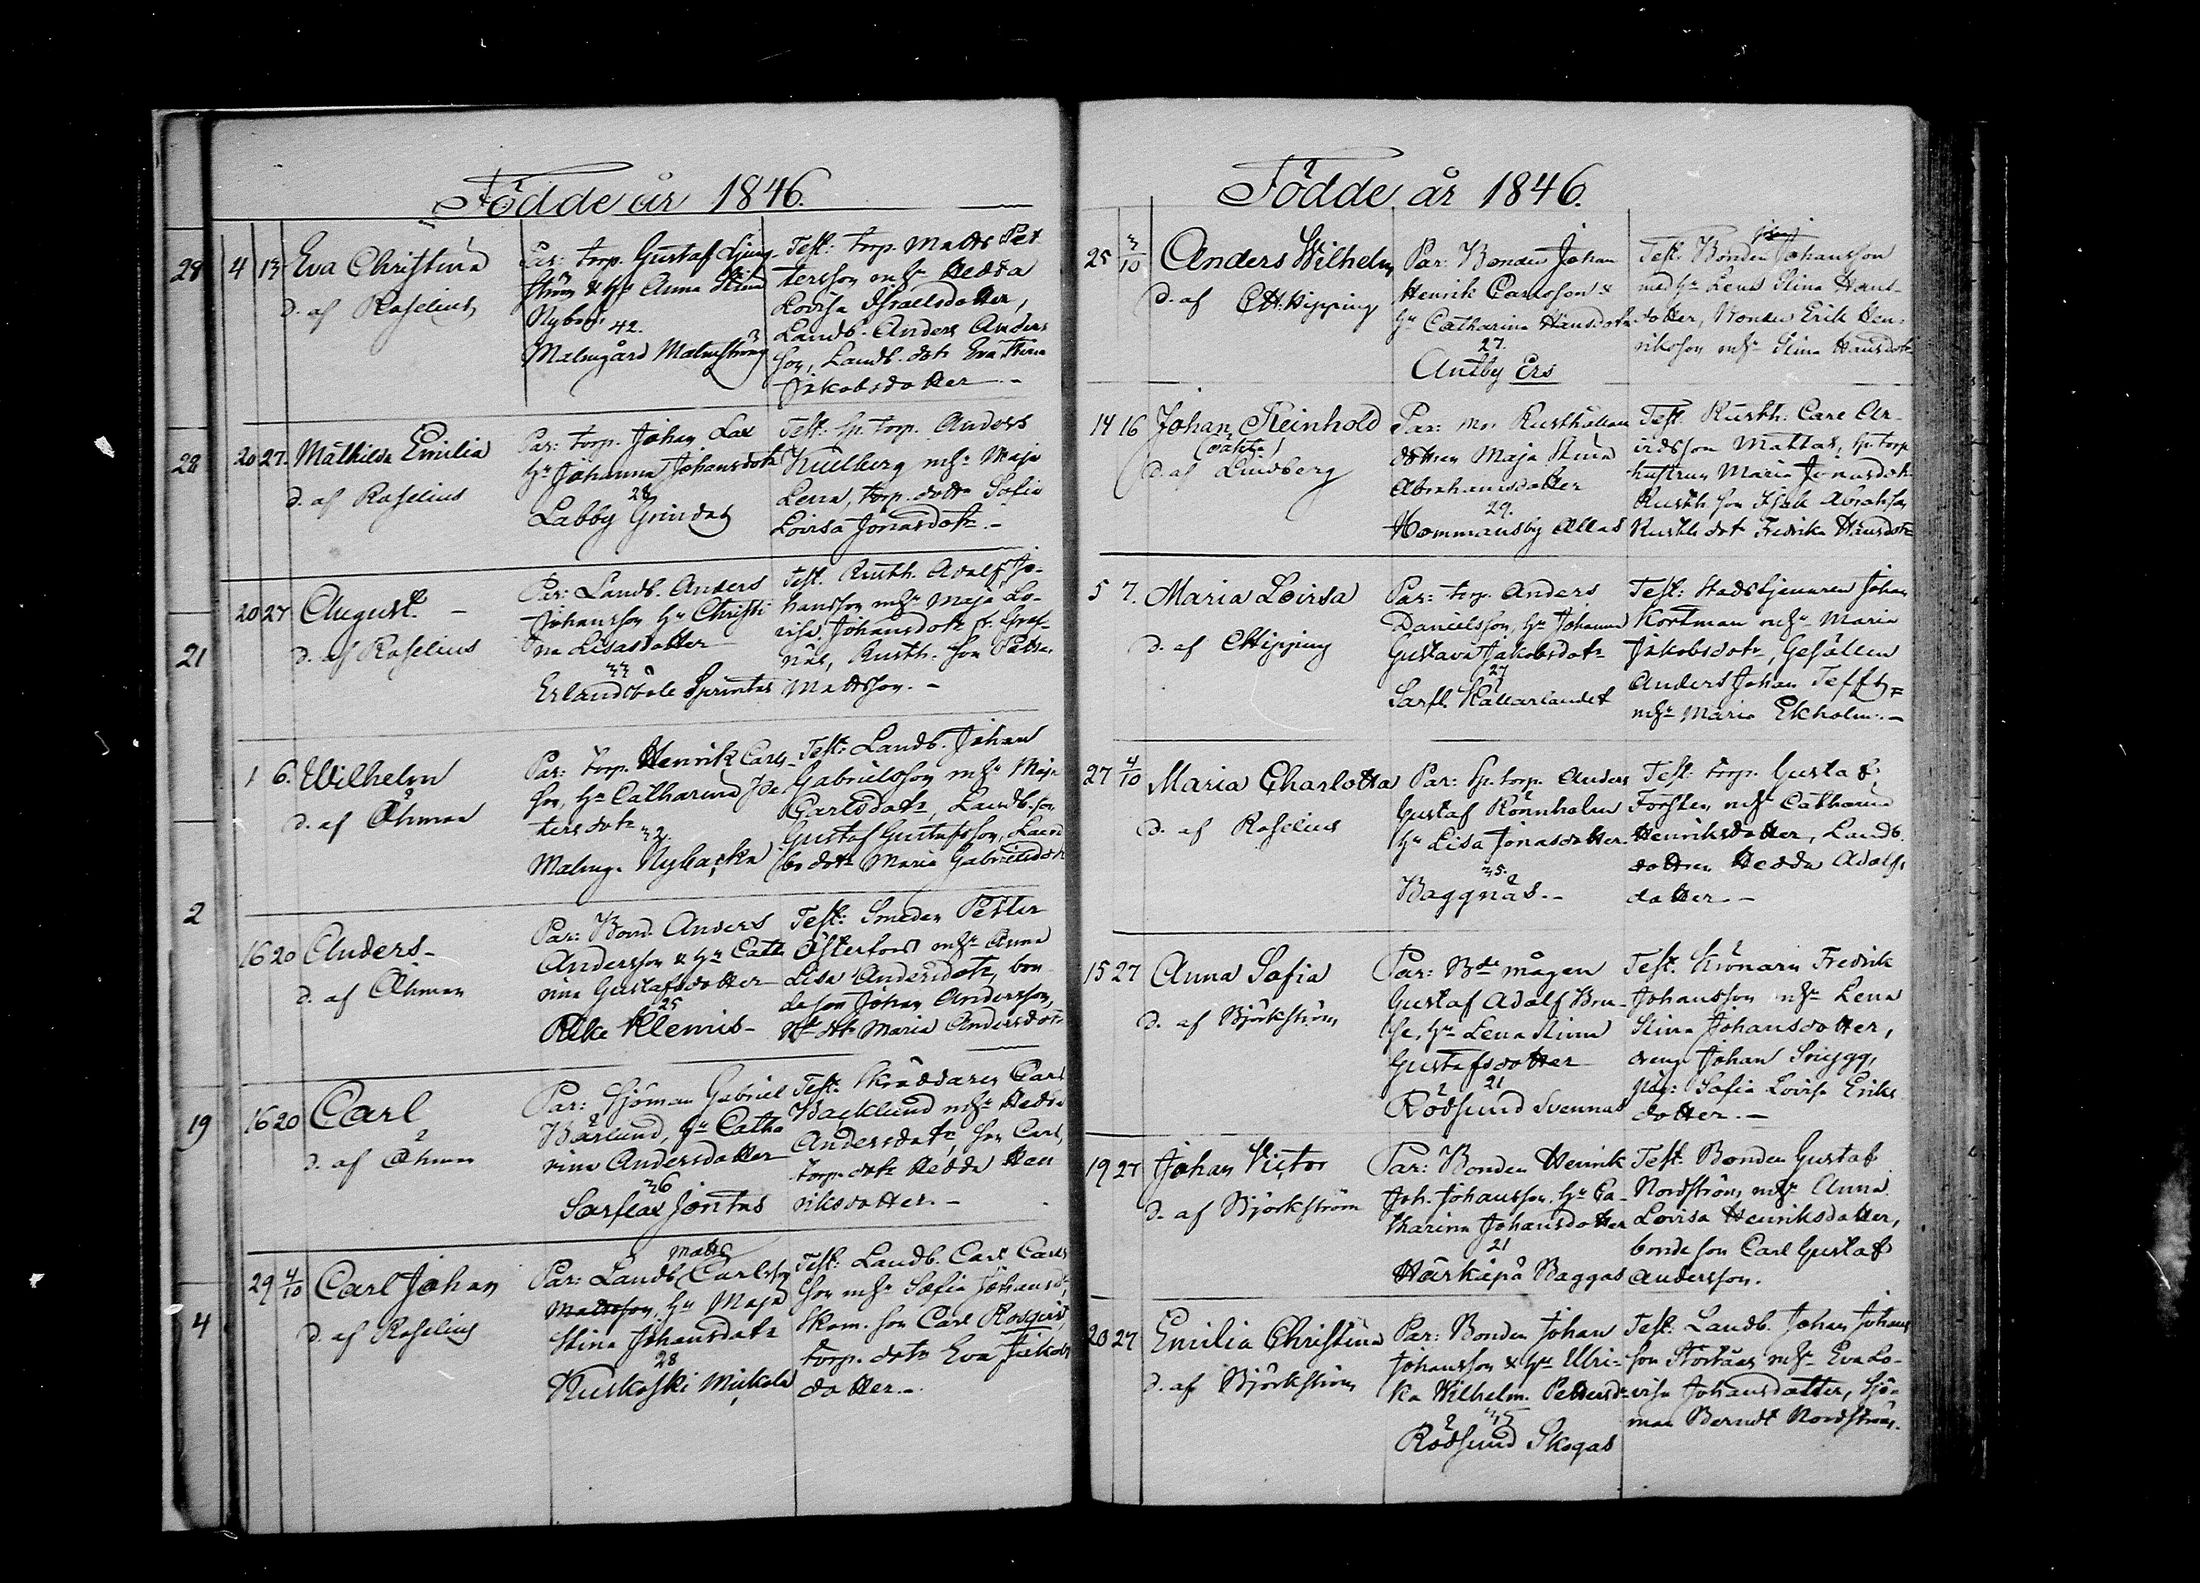 Födde år 1846.
28 4 13 Eva Christina
d. af Roselius
Par: torp. Gustaf Ljung-
ström & Hu Anna Stina
Nyberg 42.
Malmgård Malmströms
Test: torp. Matts Pet
tersson m hu Hedda
Lovisa Israelsdotter,
Landb. Anders Anders
son, Landb. dotr Eva Stina
Jakobsdotter -
28 20 27. Mathilda Emilia
d. af Roselius
Par: torp. Johan Lax
Hu Johanna Johansdotr
28
Labby Grindas
Test: Sp. torp. Anders
Kullberg m hu Maja
Lena, torp. dottr Sofia
Lovisa Jonasdotr. -
21 20 27 August. -
d. af Roselius
Par: Landb. Anders
Johansson Hu Christi
na Lisasdotter
33
Erlandsböle Sprintas
Test. Rusth. Adolf Jo-
hansson m hu Maja Lo-
visa Johansdotr fr. Gref-
näs, Rusth. son Petter
Mattsson. -
2 1 6. Wilhelm
d. af Öhman
Par: torp. Henrik Carls-
son, Hu Catharina Pe
tersdotr
32.
Malmg. Nybacka
Test: Landb. Johan
Gabrielsson m hu Maja
Carlsdotr, Landb. son
Gustaf Gustafsson, Land
bo dotr Maria Gabrielsdotr
16 20 Anders -
d. af Öhman
Par: Bond. Anders
Andersson & Hu Catha
rina Gustafsdotter
25
Pelke Klemis -
Test: Smeden Petter
Österfors m hu Anna
Lisa Andersdotr, bon
deson Johan Andersson,
Bde dtr Maria Andersdotr
19 16 20 Carl
d. af Öhman
Par: Sjöman Gabriel
Bärlund, Hu Catha
rina Andersdotter
36
Sarflax Jontas
Test: Skräddaren Carl
Backlund m hu Hedda
Andersdotr, son Carl,
torp. dotr Hedda Hen
riksdotter. -
4 29 4/10 Carl Johan
d. af Roselius
Matts
Par: Landb. Carlsson
Mattsson, Hu Maja
Stina Johansdotr
28
Kuskoski Mickola
Test: Landb. Carl Carls
son m hu Sofia Johansd,
Skom. son Carl Rosqvist,
torp. dotr Eva Jakobs
dotter. -
Födde år 1846.
25 3/10 Anders Wilhelm
d. af CH. Hipping
Par: Bonden Johan
Henrik Carlsson &
Hu Catharina Hansdotr
27.
Antby Ers
Test. Bonden Johansson
med Hu Lena Stina Hans-
dotter, Bonden Erik Hen-
riksson m hu Stina Hansdotr
14 16 Johan Reinhold
(oäkta)
d. af Lindberg
Par: mor Rusthållare
dottren Maja Stina
Abrahamsdotter
29.
Hommansby Allas
Test. Rusth. Carl Ar-
vidsson Mattas, Sp. torp.
hustrun Maria Jonasdotr
Rusth son Isak Abrahsn
Rusth. dot Fredrika Hansdotr
5 7. Maria Lovisa
d. af CHipping
Par: torp. Anders
Danielsson, Hu Johanna
Gustava Jakobsdotr
27
Sarfl. Källarlandet
Test: Stadstjenaren Johan
Kortman m hu Maria
Jakobsdotr, Gesällen
Anders Johan
m hu Maria Ekholm. -
27 4/10 Maria Charlotta
d. af Roselius
Par: Sp. torp. Anders
Gustaf Rönnholm
Hu Lisa Jonasdotter
35.
Baggnäs. -
Test: torp. Gustaf
Forsten m hu Catharina
Henriksdotter, Landb.
dottren Hedda Adolfs
dotter -
15 27 Anna Sofia
d. af Björkström
Par: Bde mågen
Gustaf Adolf Bru-
se, Hu Lena Stina
Gustafsdotter
21
Rödsund Svennas
Test. Krönarn Fredrik
Johansson m hu Lena
Stina Johansdotter,
dreng Johan Snygg,
pig: Sofia Lovisa Eriks
dotter. -
19 27 Johan Victor
d. af Björkström
Par: Bonden Henrik
Joh. Johansson Hu Ca-
tharina Johansdotter
21
Härkäpä Baggas
Test: Bonden Gustaf
Nordström, m hu Anna
Lovisa Henriksdotter,
bonde son Carl Gustaf
Andersson.
20 27 Emilia Christina
d. af Björkström
Par: Bonden Johan
Johansson & Hu Ulri-
ka Wilhelm. Pettersdr
35
Rödsund Skogas
Test: Landb. Johan Johans
son Storkäas m hu Eva Lo-
visa Johansdotter, Sjö-
man Berndt Nordström.